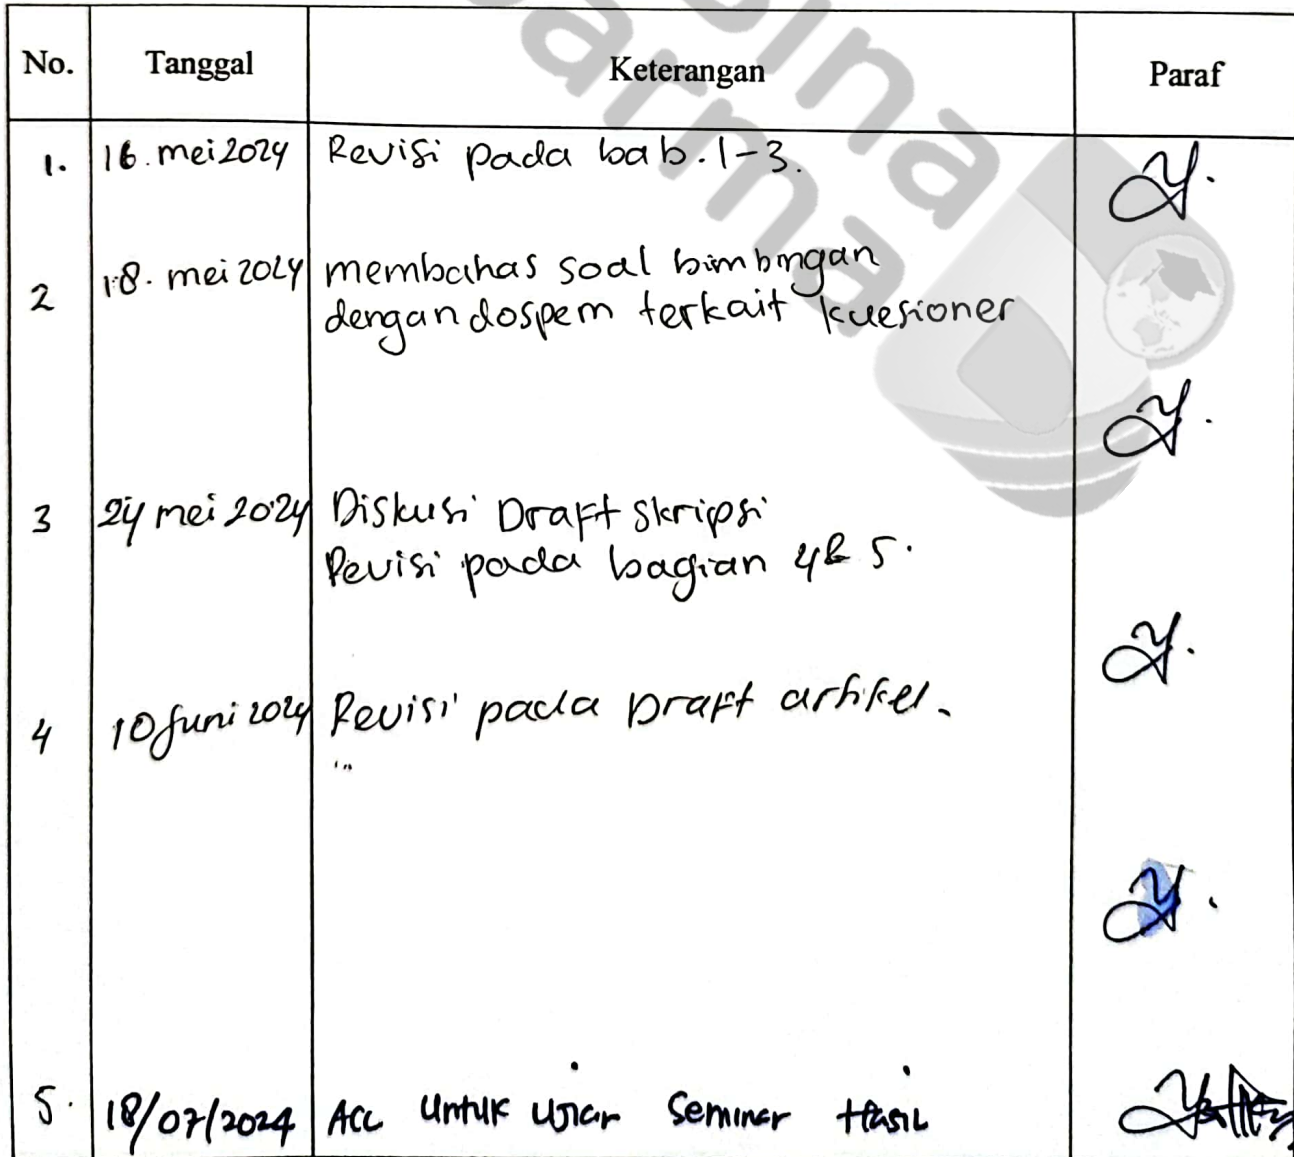 bina
darma
No. Tanggal Keterangan Paraf
1. 16. mei 2024 Revisi pada bab. 1-3.
2 18. mei 2024 membahas soal bimbingan
dengan dospem terkait kuesioner
3 24 mei 2024 Diskusi Draft Skripsi
Revisi pada bagian 4 & 5.
4 10 Juni 2024 Revisi pada Draft artikel.
5. 18/07/2024 ACC Untuk Ujian Seminar Hasil